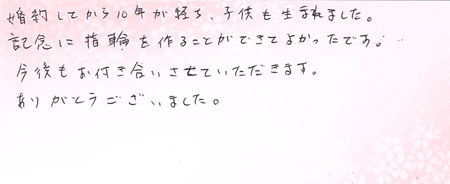 婚約してから10年が経ち、子供も生まれました。
記念に指輪を作ることができてよかったです。
今後もお付き合いさせていただきます。
ありがとうございました。